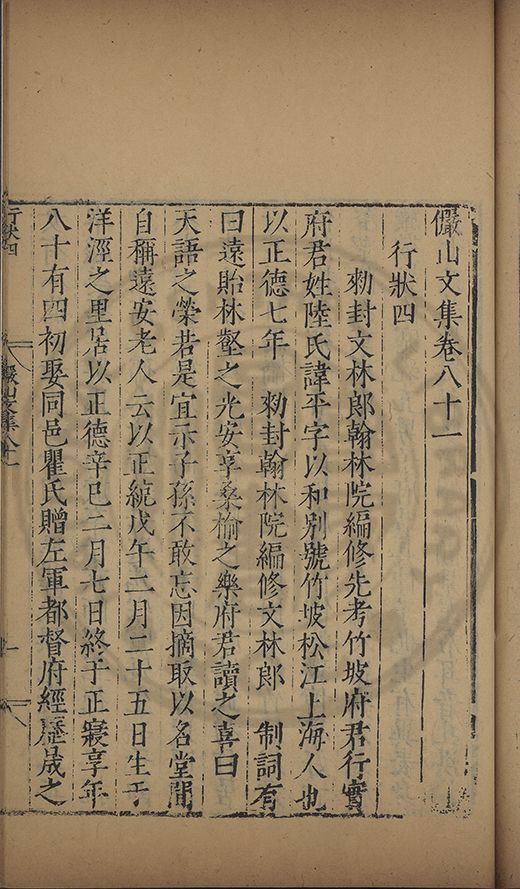 儼山文集卷八十一
行狀四
勑封文林郎翰林院編修先考竹坡府君行實
府君姓陸氏諱平字以和別號竹坡松江上海人也
以正德七年 勑封翰林院編修文林郎 制詞有
曰遠貽林壑之光安享桑榆之樂府君讀之喜曰
天語之榮若是宜示子孫不敢忘因摘取以名堂間
自稱遠安老人云以正統戊午二月二十五日生于
洋涇之里居以正德辛巳二月七日終于正寢享年
八十有四初娶同邑瞿氏贈左軍都督府經歷晟之
行狀四
儼山文集八十一
一